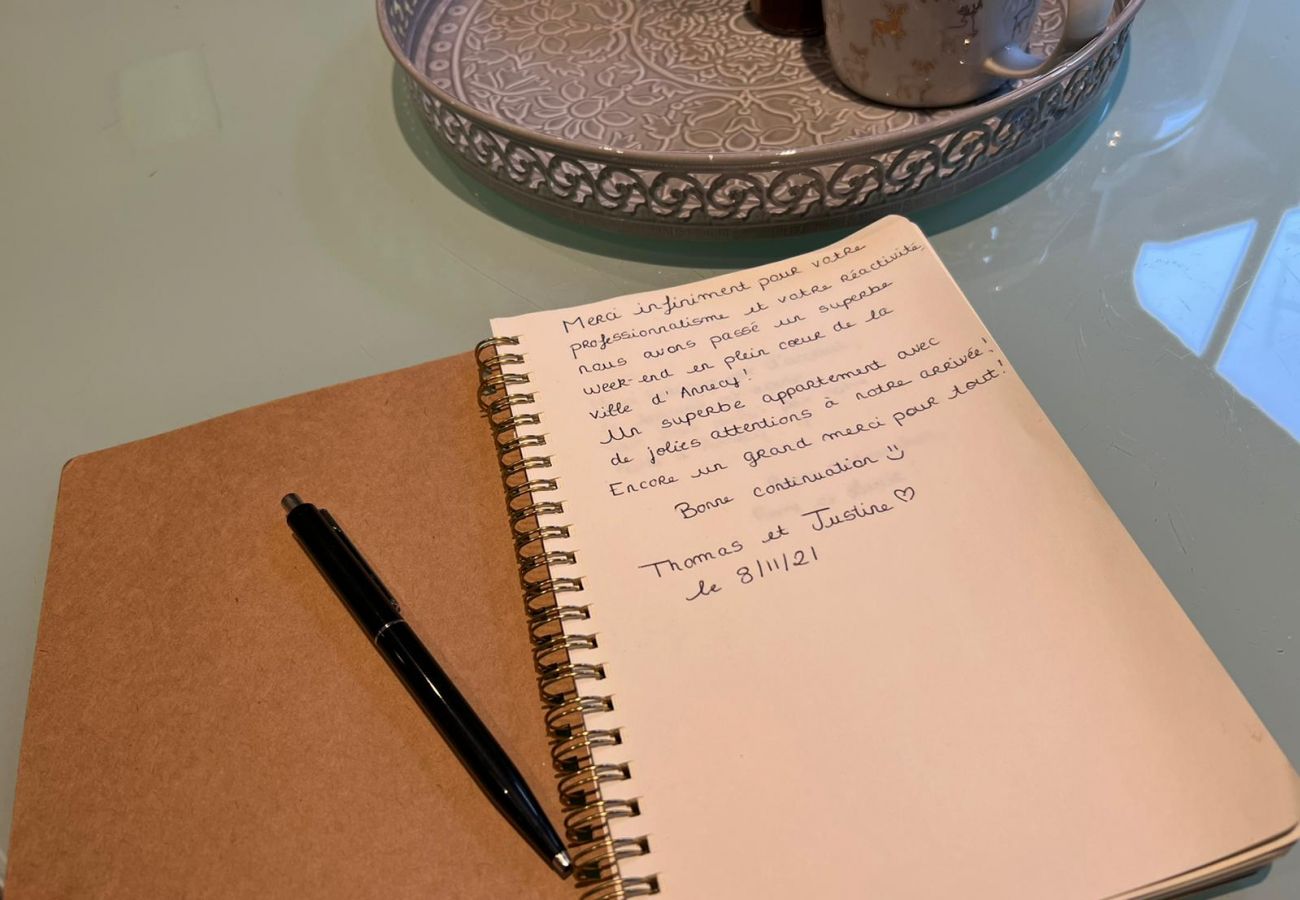 Merci infiniment pour votre
professionnalisme et votre réactivité,
nous avons passé un superbe
week-end en plein cœur de la
ville d'Annecy!
Un superbe appartement avec
de jolies attentions à notre arrivée!
Encore un grand merci pour tout!
Bonne continuation :)
Thomas et Justine ♡
le 8/11/21